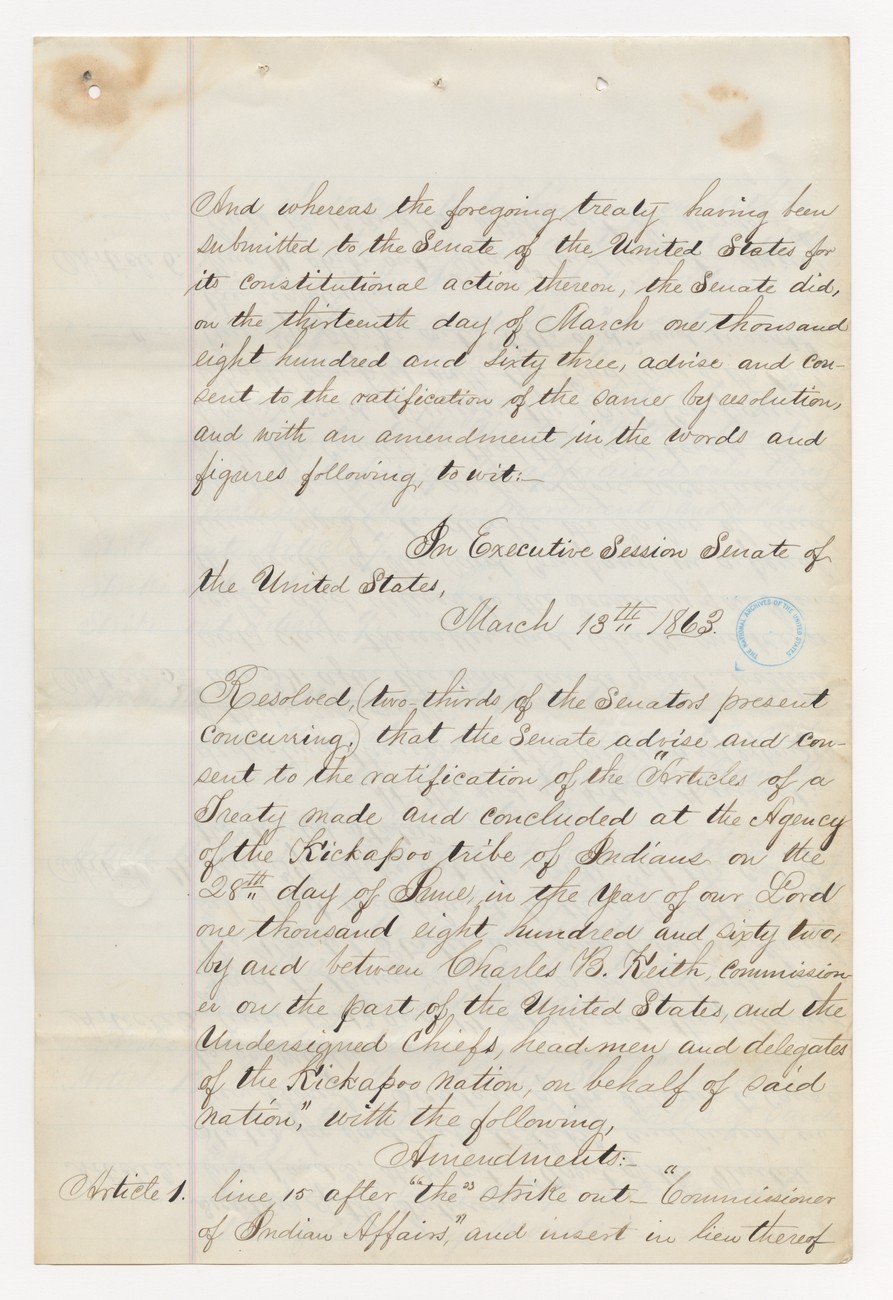 And whereas the foregoing treaty having been
submitted to the Senate of the United States for
its constitutional action thereon, the Senate did,
on the thirteenth day of March one thousand
eight hundred and sixty three, advise and con-
sent to the ratification of the same by resolution,
and with an amendment in the words and
figures following, to wit:—
In Executive Session Senate of
the United States,
March 13th 1863.
THE NATIONAL ARCHIVES OF THE UNITED STATES
Resolved, (two-thirds of the Senators present
concurring,) that the Senate advise and con-
sent to the ratification of the "Articles of a
Treaty made and concluded at the Agency
of the Kickapoo tribe of Indians on the
28th day of June, in the year of our Lord
one thousand eight hundred and sixty two,
by and between Charles B. Keith, commission-
er on the part of the United States, and the
Undersigned Chiefs, headmen and delegates
of the Kickapoo nation, on behalf of said
nation," with the following,
Amendments:—
Article 1. line 15 after "the" strike out— "Commissioner
of Indian Affairs," and insert in lieu thereof